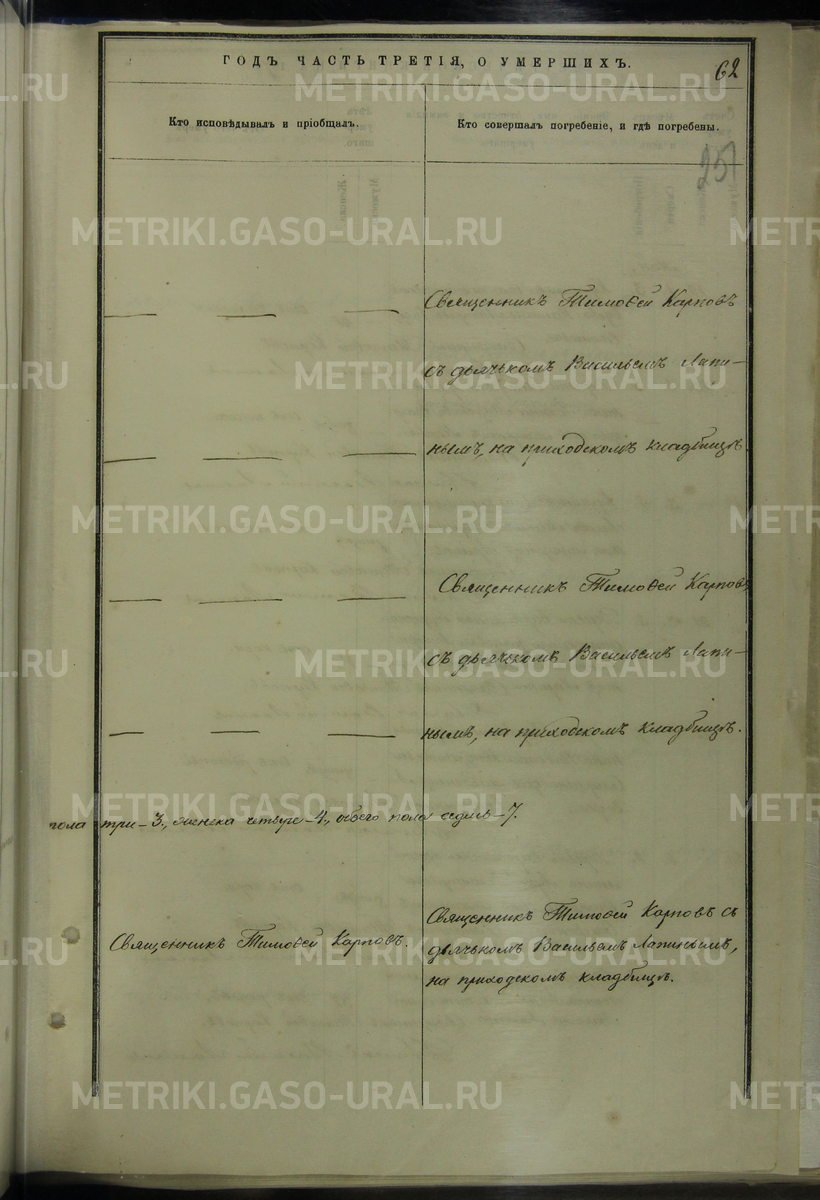 ГОДЪ ЧАСТЬ ТРЕТІЯ, О УМЕРШИХЪ.
62
Кто исповѣдывалъ и пріобщалъ.
Кто совершалъ погребеніе, и гдѣ погребены.
257
Священникъ Тимоѳей Карповъ
съ дьячькомъ Васильемъ Лапи-
нымъ, на приходскомъ кладбищѣ.
Священникъ Тимоѳей Карповъ
съ дьячькомъ Васильемъ Лапи-
нымъ, на приходскомъ кладбищѣ.
пола три-3., женска четыре-4., обоего пола седмь-7.
Священникъ Тимоѳей Карповъ.
Священникъ Тимоѳей Карповъ съ
дьячькомъ Васильемъ Лапинымъ,
на приходскомъ кладбищѣ.
METRIKI.GASO-URAL.RU